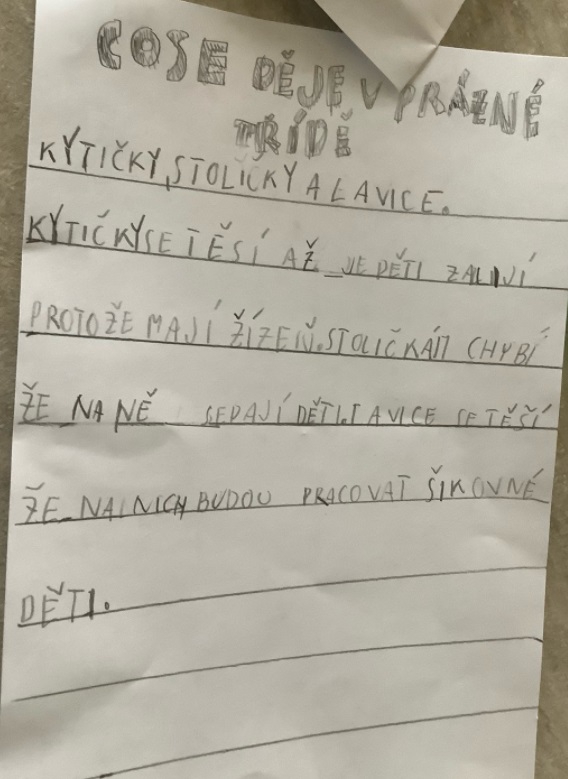 COSE DĚJE V PRÁZNÉ
TŘÍDĚ
KYTIČKY, STOLIČKY A LAVICE.
KYTIČKY SE TĚŠÍ AŽ JE DĚTI ZALIJÍ
PROTOŽE MAJÍ ŽÍZEŇ. STOLIČKÁM CHYBÍ
ŽE NA NĚ SEDAJÍ DĚTI. LAVICE SE TĚŠÍ
ŽE NA NICH BUDOU PRACOVAT ŠIKOVNÉ
DĚTI.